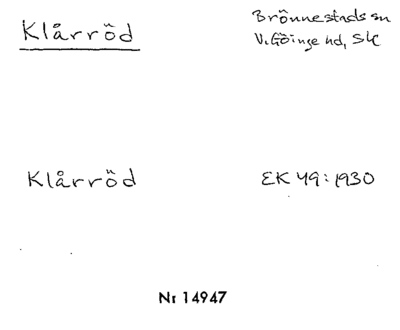 Klårröd
Brönnestads sn
V. Göinge hd, Sk
Klårröd
EK 49:1930
Nr 14947